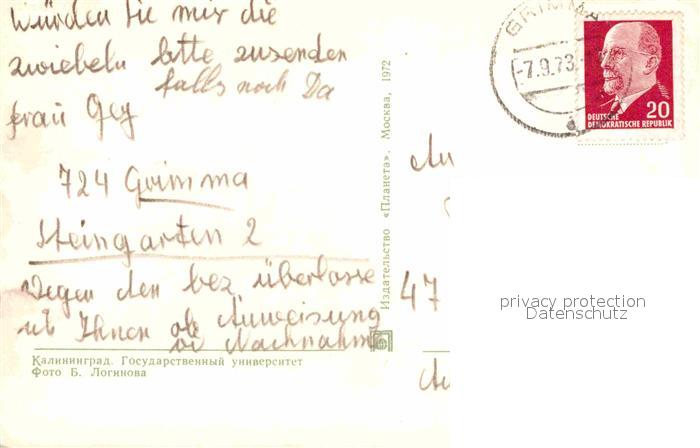 würden Sie mir die
zwiebeln bitte zusenden
falls noch Da
frau Gey
724 Grimma
Steingarten 2
Wegen den bez. überlasse
ich Ihnen ob Anweisung
od Nachnahme
Калининград. Государственный университет
Фото Б. Логинова
Издательство «Планета». Москва, 1972
GRIMMA
-7.9.73
20
DEUTSCHE
DEMOKRATISCHE REPUBLIK
An
47
privacy protection
Datenschutz